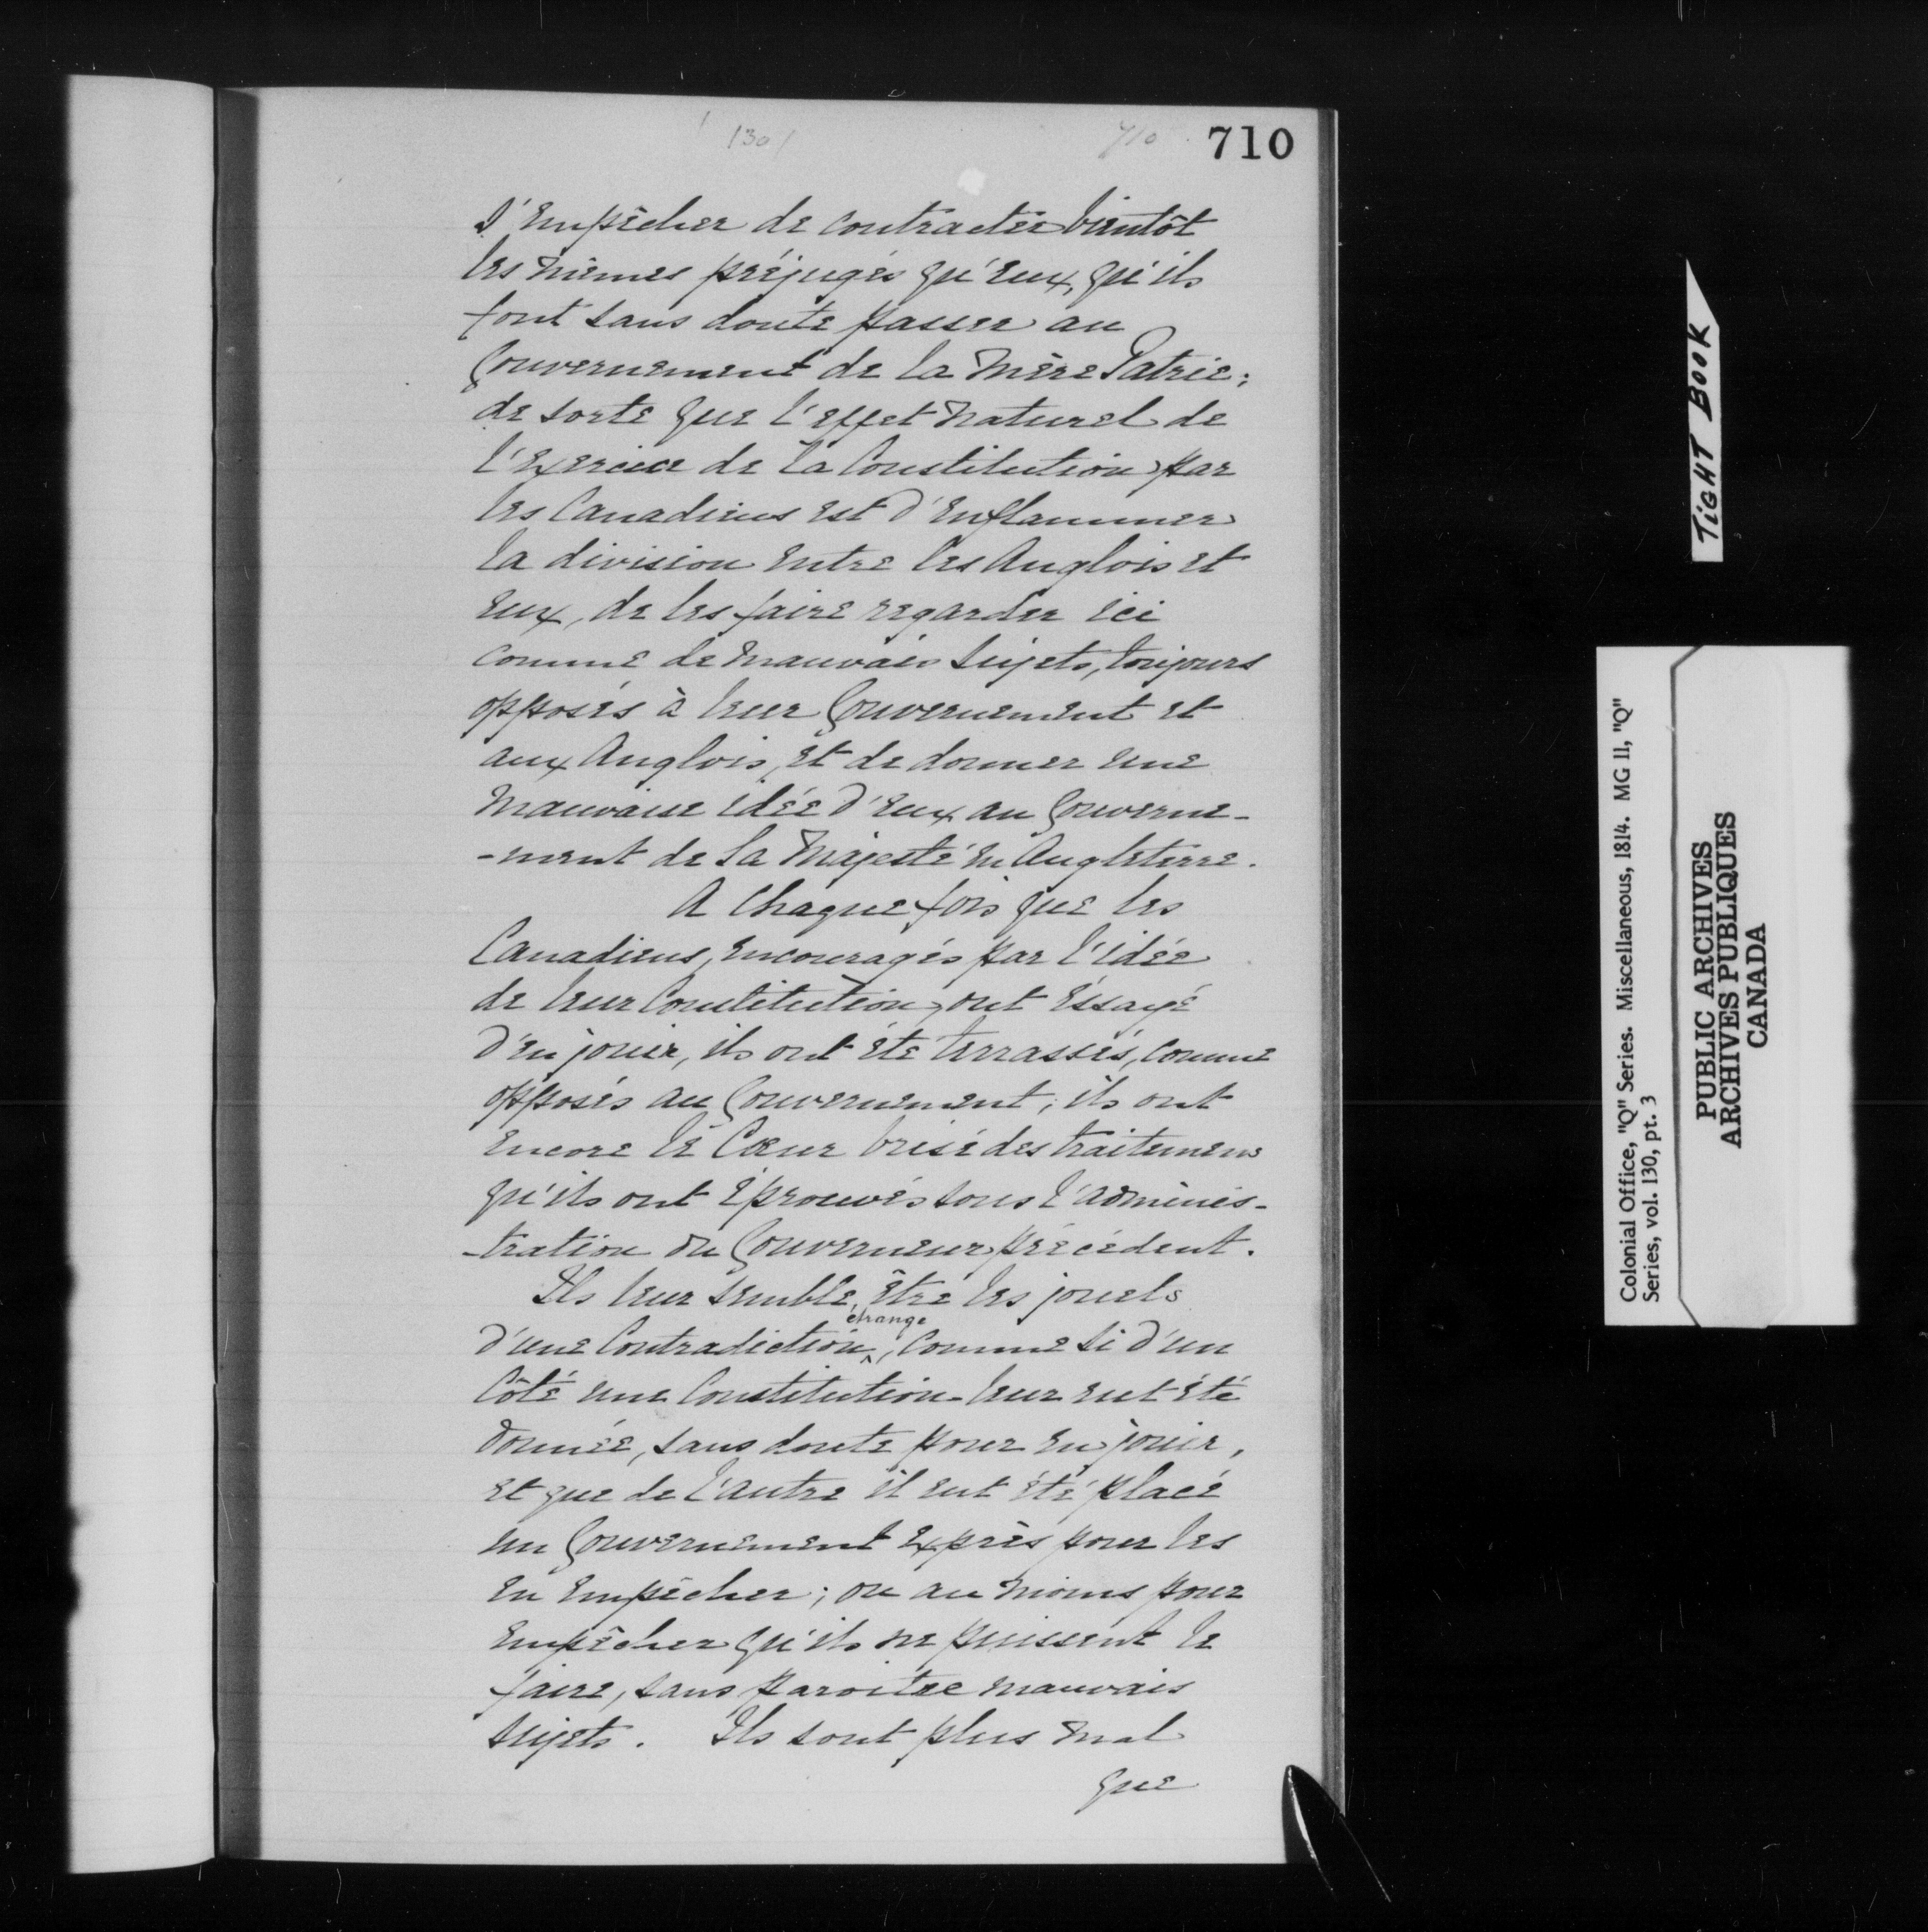 130/
710
710
s'empêcher de contracter bientôt
les mêmes préjugés qu'eux, qu'ils
font sans doute passer au
Gouvernement de la Mère Patrie;
de sorte que l'effet naturel de
l'exercice de la Constitution par
les Canadiens est d'enflammer
la division entre les Anglois et
eux, de les faire regarder ici
comme de mauvais sujets, toujours
opposés à leur Gouvernement et
aux Anglois, et de donner une
mauvaise idée d'eux au Gouverne-
-ment de Sa Majesté en Angleterre.
A chaque fois que les
Canadiens, encouragés par l'idée
de leur Constitution, ont éssayé
d'en jouir, ils ont été terrassés, comme
opposés au Gouvernement; ils ont
encore le Cœur brisé des traitemens
qu'ils ont éprouvés sous l'adminis-
-tration du Gouverneur précédent.
Ils leur semble, être les jouets
étrange
d'une Contradiction^, comme si d'un
Côté une Constitution leur eut été
donnée, sans doute pour en jouir,
et que de l'autre il eut été placé
un Gouvernement exprès pour les
en empêcher; ou au moins pour
empêcher qu'ils ne puissent le
faire, sans paroitre mauvais
sujets. Ils sont plus mal
que
TIGHT BOOK
Colonial Office, "Q" Series. Miscellaneous, 1814. MG 11, "Q"
Series, vol. 130, pt. 3
PUBLIC ARCHIVES
ARCHIVES PUBLIQUES
CANADA